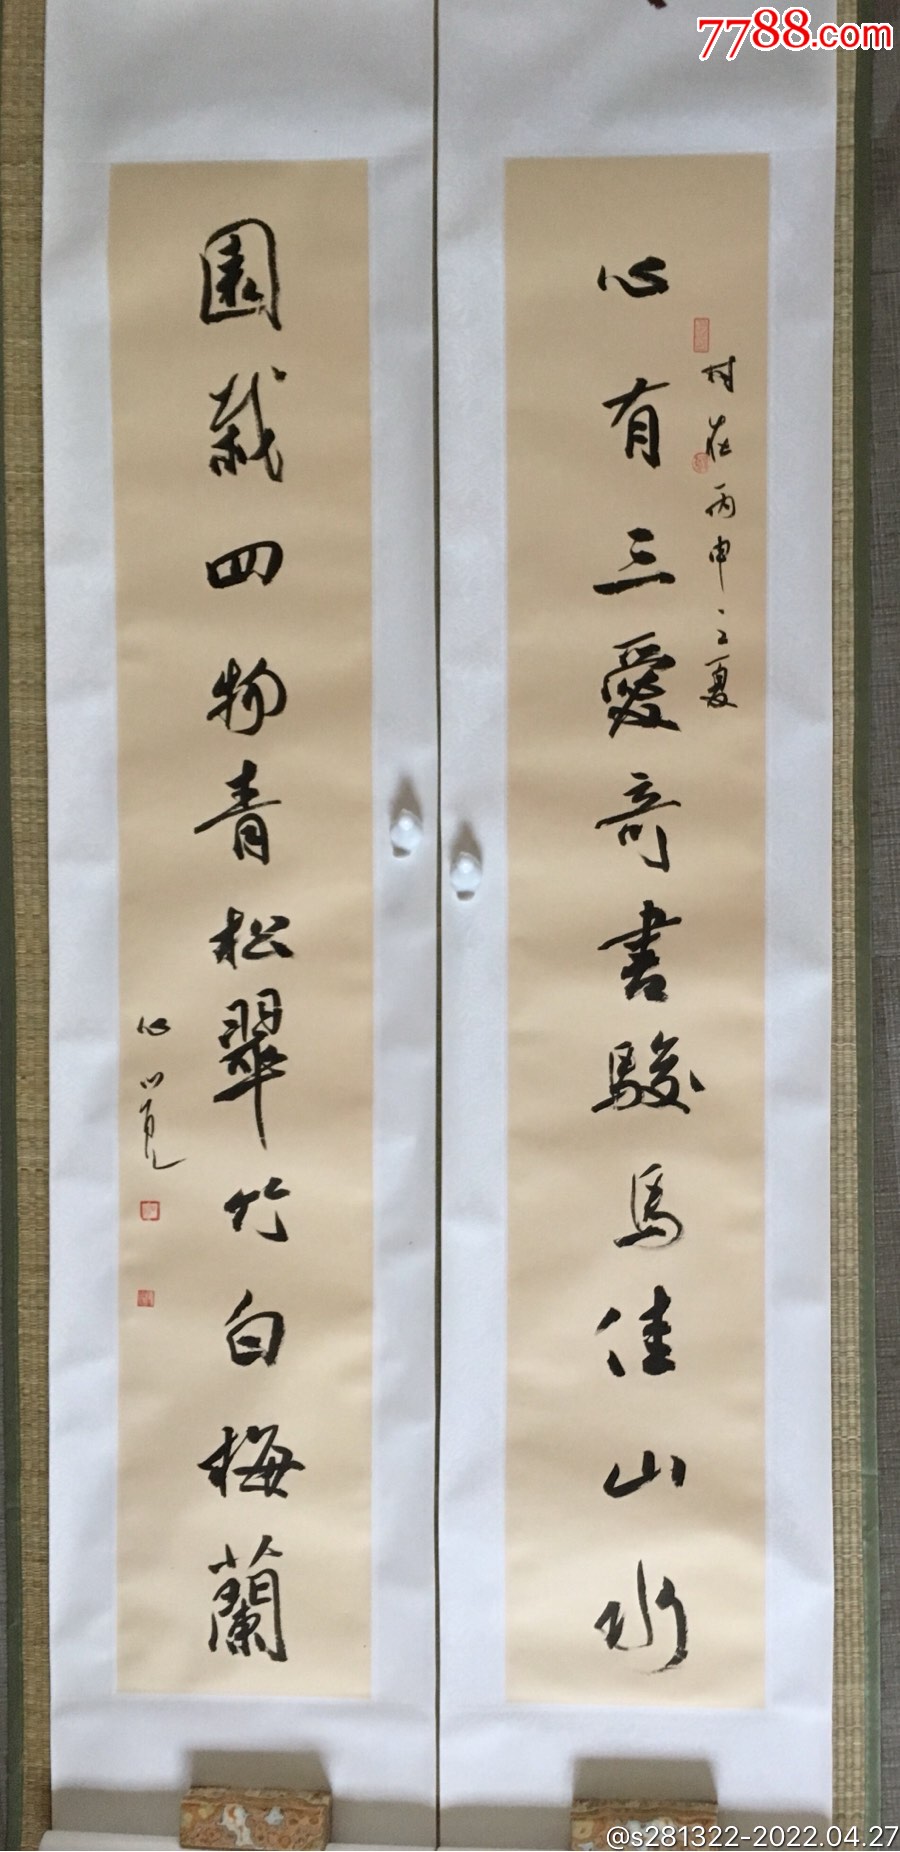 7788.com
心有三愛奇書駿馬佳山水
丙申之夏
園栽四物青松翠竹白梅蘭
@s281322-2022.04.27